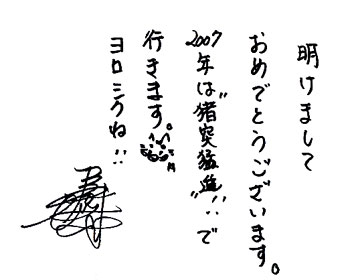 明けまして
おめでとうございます。
2007年は"猪突猛進"!!で
行きます。
ヨロシクね!!